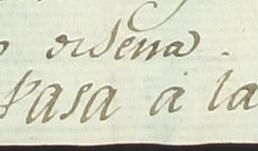 ordena.
Pasa á la